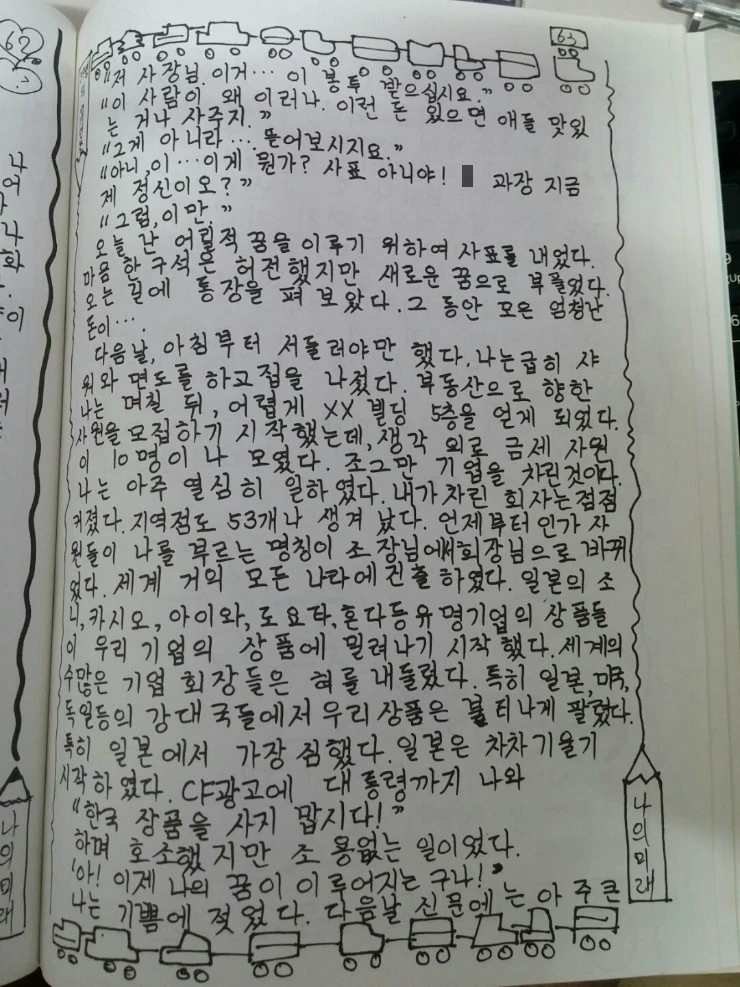 63
"저 사장님. 이거… 이 봉투 받으십시요."
"이 사람이 왜 이러나. 이런 돈 있으면 애들 맛있
는 거나 사주지."
"그게 아니라…. 뜯어보시지요."
"아니, 이…이게 뭔가? 사표 아니야! 과장 지금
제 정신이오?"
"그럼, 이만."
오늘 난 어릴적 꿈을 이루기 위하여 사표를 내었다.
마음 한 구석은 허전했지만 새로운 꿈으로 부풀었다.
오는 길에 통장을 펴 보았다. 그 동안 모은 엄청난
돈이….
다음날, 아침부터 서둘러야만 했다. 나는 급히 샤
워와 면도를 하고 집을 나섰다. 부동산으로 향한
나는 며칠 뒤, 어렵게 XX 빌딩 5층을 얻게 되었다.
사원을 모집하기 시작했는데, 생각 외로 금세 사원
이 10명이나 모였다. 조그만 기업을 차린것이다.
나는 아주 열심히 일하였다. 내가 차린 회사는 점점
커졌다. 지역점도 53개나 생겨 났다. 언제부터인가 사
원들이 나를 부르는 명칭이 조 장님에서 회장님으로 바뀌
었다. 세계 거의 모든 나라에 진출하였다. 일본의 소
니, 카시오, 아이와, 도요타, 혼다등 유명기업의 상품들
이 우리 기업의 상품에 밀려나기 시작했다. 세계의
수많은 기업 회장들은 혀를 내둘렀다. 특히 일본, 미국,
독일등의 강대국들에서 우리 상품은 불티나게 팔렸다.
특히 일본에서 가장 심했다. 일본은 차차 기울기
시작하였다. CF광고에 대통령까지 나와
"한국 장품을 사지 맙시다!"
하며 호소했지만 소용없는 일이었다.
'아! 이제 나의 꿈이 이루어지는구나!'
나는 기쁨에 젖었다. 다음날 신문에는 아주 큰
나의 미래
62
나의 미래